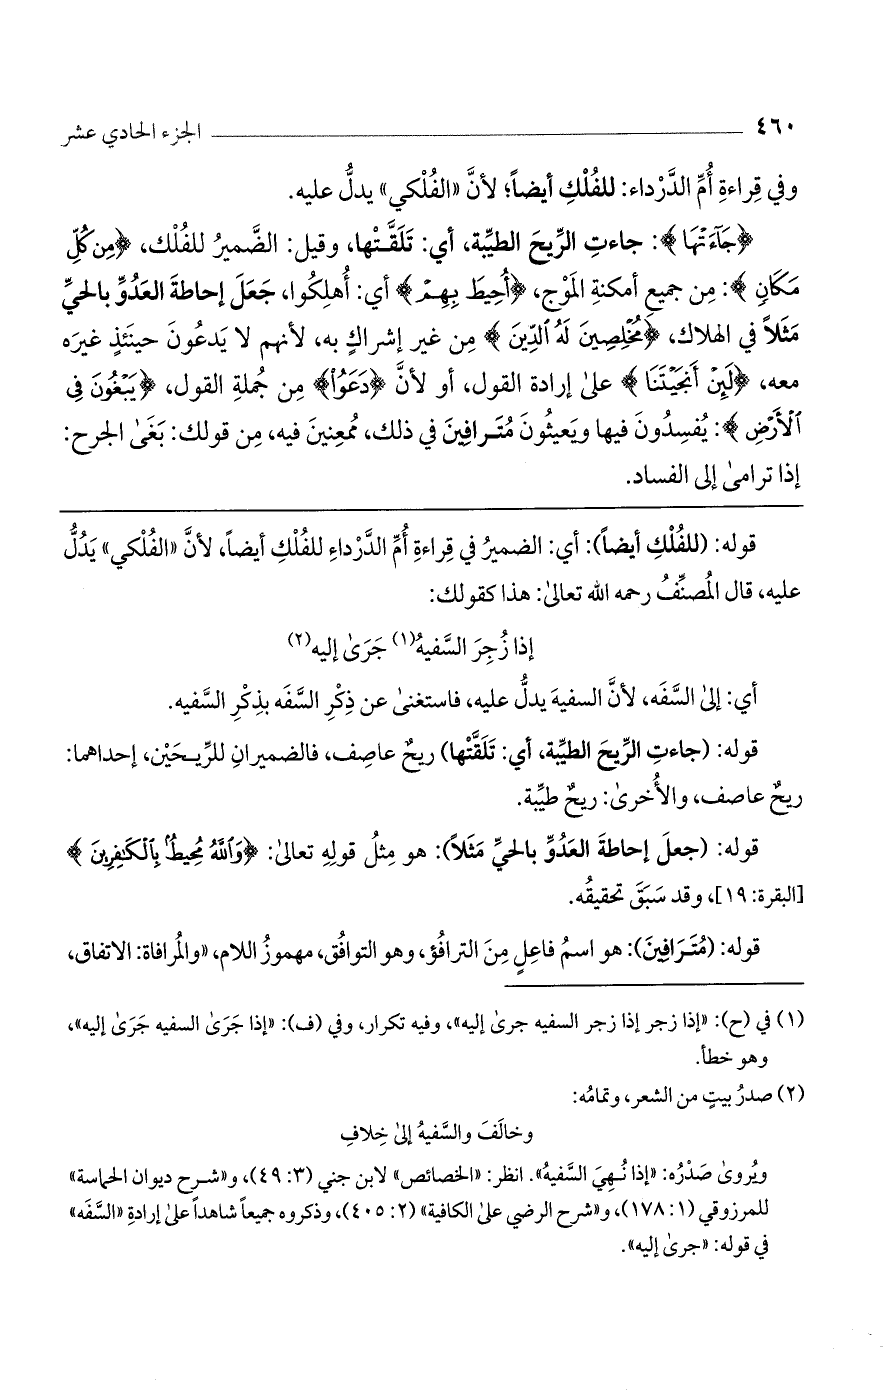 ٤٦٠ الجزء الحادي عشر
وفي قِراءةِ أُمِّ الدَّرْداء: للفُلْكِ أيضاً؛ لأنَّ «الفُلْكي» يدلُّ عليه.
﴿جَآءَتْهَا﴾: جاءتِ الرِّيحَ الطيِّبة، أي: تَلَقَّتْها، وقيل: الضَّميرُ للفُلْك، ﴿مِن كُلِّ
مَكَانٍ﴾: مِن جميع أمكنةِ المَوْج، ﴿أُحِيطَ بِهِمْ﴾ أي: أُهلِكُوا، جَعَلَ إحاطةَ العَدُوِّ بالحيِّ
مَثَلاً في الهلاك، ﴿مُخْلِصِينَ لَهُ ٱلدِّينَ﴾ مِن غير إشراكٍ به، لأنهم لا يَدعُونَ حينَئذٍ غيرَه
معه، ﴿لَئِنْ أَنجَيْتَنَا﴾ علىٰ إرادة القول، أو لأنَّ ﴿دَعَوُا۟﴾ مِن جُملةِ القول، ﴿يَبْغُونَ فِى
ٱلْأَرْضِ﴾: يُفسِدُونَ فيها ويَعيثُونَ مُتَرافِينَ في ذلك، مُمعِنينَ فيه، مِن قولك: بَغَىٰ الجرح:
إذا ترامىٰ إلى الفساد.
قوله: (للفُلْكِ أيضاً): أي: الضميرُ في قِراءةِ أُمِّ الدَّرْداءِ للفُلْكِ أيضاً، لأنَّ «الفُلْكي» يَدُلُّ
عليه، قال المُصنِّفُ رحمه الله تعالىٰ: هذا كقولك:
إذا زُجِرَ السَّفيهُ(١) جَرَىٰ إليه(٢)
أي: إلىٰ السَّفَه، لأنَّ السفيهَ يدلُّ عليه، فاستغنىٰ عن ذِكْرِ السَّفَه بذِكْرِ السَّفيه.
قوله: (جاءتِ الرِّيحَ الطيِّبة، أي: تَلَقَّتْها) ريحٌ عاصِف، فالضميرانِ للرِّيحَيْن، إحداهما:
ريحٌ عاصف، والأُخرىٰ: ريحٌ طيِّبة.
قوله: (جعلَ إحاطةَ العَدُوِّ بالحيِّ مَثَلاً): هو مِثلُ قولِهِ تعالىٰ: ﴿وَٱللَّهُ مُحِيطٌۢ بِٱلْكَٰفِرِينَ﴾
[البقرة: ١٩]، وقد سَبَقَ تحقيقُه.
قوله: (مُتَرَافِينَ): هو اسمُ فاعِلٍ مِنَ الترافُؤ، وهو التوافُق، مهموزُ اللام، «والمُرافاة: الاتفاق،
(١) في (ح): «إذا زجر إذا زجر السفيه جرىٰ إليه»، وفيه تكرار، وفي (ف): «إذا جَرَىٰ السفيه جَرَىٰ إليه»،
وهو خطأ.
(٢) صدرُ بيتٍ من الشعر، وتمامُه:
وخالَفَ والسَّفيهُ إلىٰ خِلافِ
ويُروىٰ صَدْرُه: «إذا نُهِيَ السَّفيهُ». انظر: «الخصائص» لابن جني (٣: ٤٩)، و«شرح ديوان الحماسة»
للمرزوقي (١: ١٧٨)، و«شرح الرضي علىٰ الكافية» (٢: ٤٠٥)، وذكروه جميعاً شاهداً علىٰ إرادةِ «السَّفَه»
في قوله: «جرىٰ إليه».